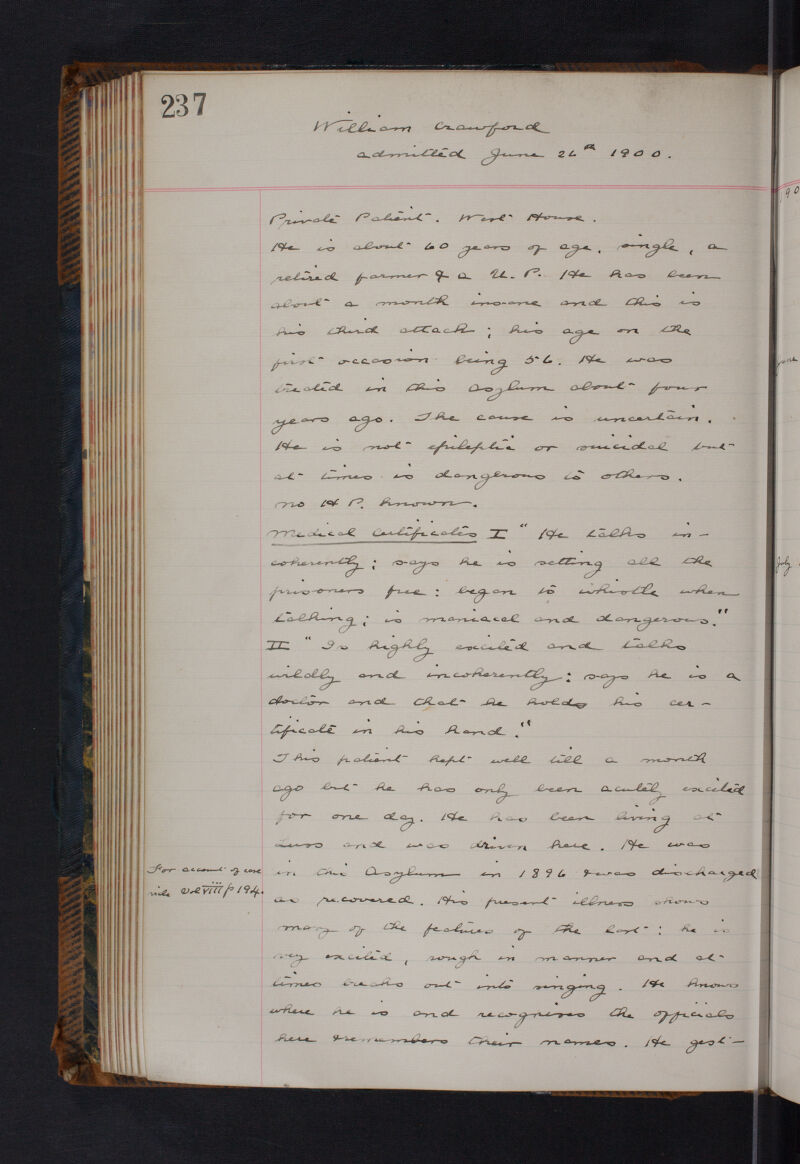 237
William Crawford
admitted June 26th 1900.
Private Patient. West House.
He is about 60 years of age, single, a
retired farmer & a U. P. He has been
about a month insane and this is
his third attack; his age on the
first occasion being 56. He was
treated in this Asylum about four
years ago. The cause is uncertain.
He is not epileptic or suicidal but
at times is dangerous to others.
No H P. known.
Medical Certificates I "He talks in-
coherently; says he is setting all the
prisoners free: began to whistle when
talking; is maniacal and dangerous."
II "Is highly excited and talks
wildly and incoherently: says he is a
doctor and that he holds his cer-
tificate in his hand."
This patient kept well till a month
ago but he has only been acutely excited
for one day. He has been living at
Luss and was driven here. He was
For account of case
vide Vol VIII p 194.
in this Asylum in 1896 & was discharged
as recovered. His present illness shows
many of the features of the last: he is
very excited, rough in manner and at
times breaks out into singing. He knows
where he is and recognises the officials
here & remembers their names. He gest-
190
June
July